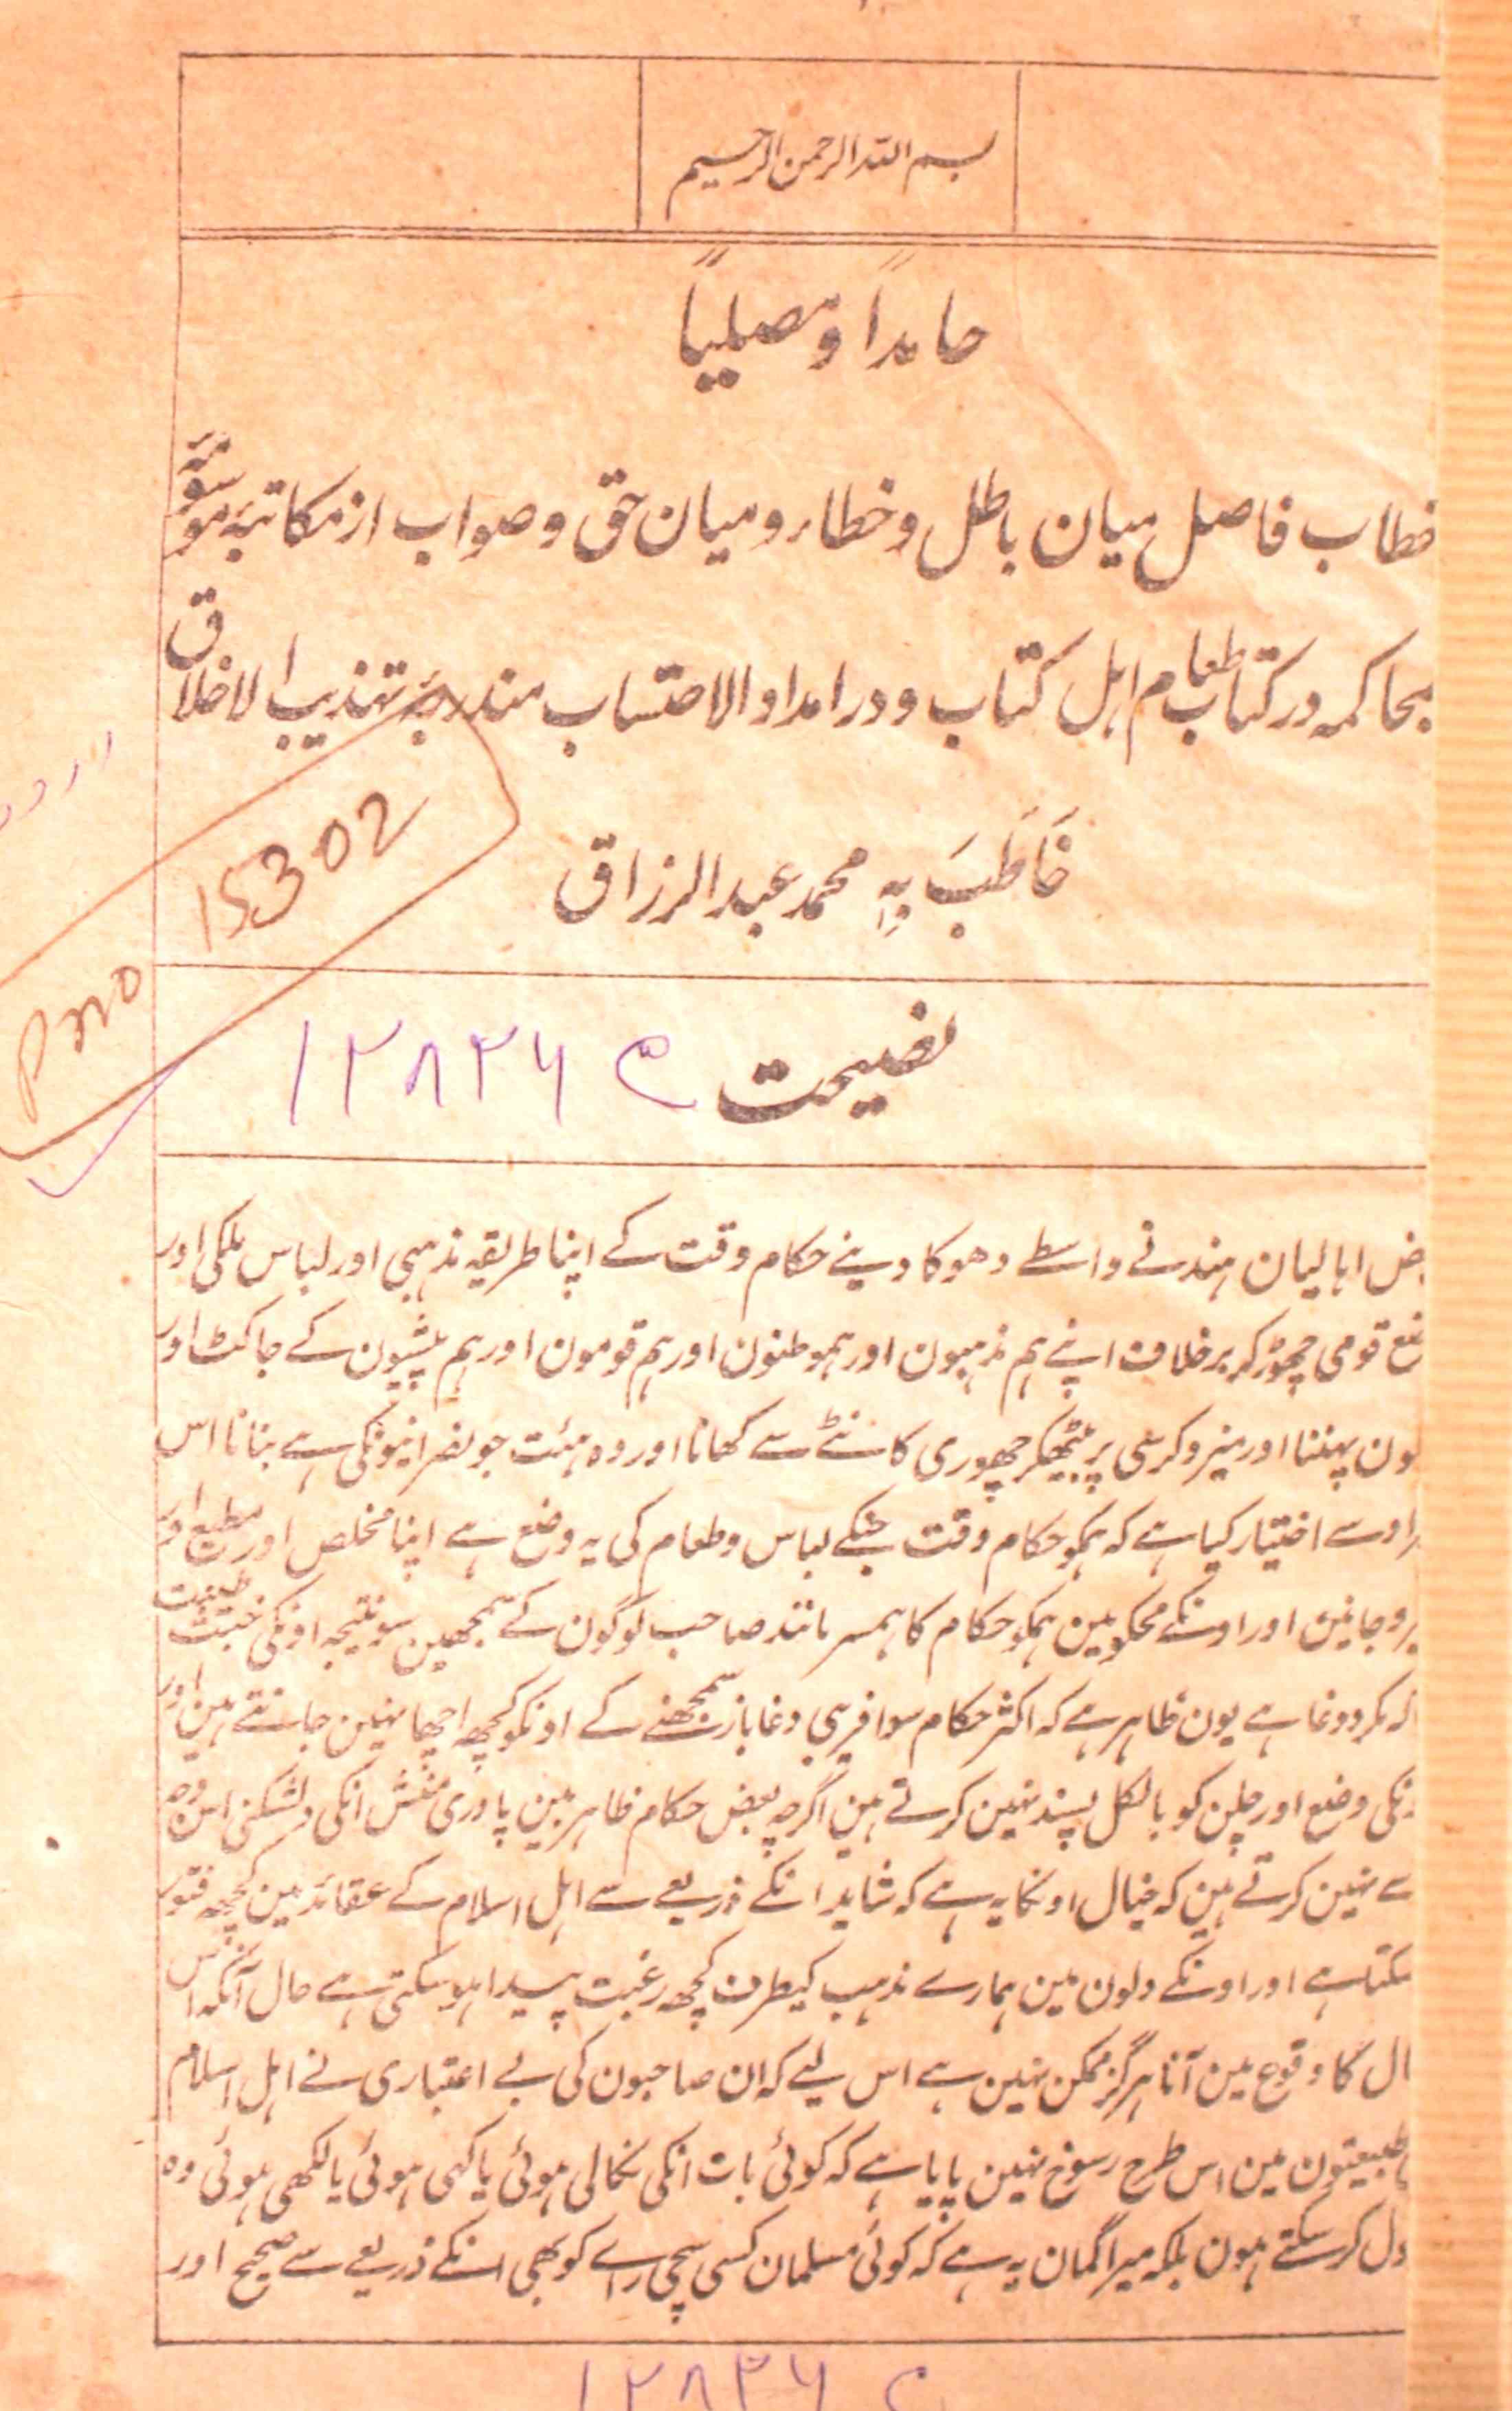 بسم اللہ الرحمن الرحیم
حامداً و مصلیاً
خطاب فاصل میان باطل و خطاء و میان حق و صواب از مکاتبۂ موسومہ
بمحاکمہ در کتاب طعام اہل کتاب و در امداد الاحتساب مندرجۂ تہذیب الاخلاق
خَاطَبَ بِہٖ محمد عبدالرزاق
Pno 15302
اردو
نصیحت ۱۲۸۲۶
بعض اہالیان ہند نے واسطے دھوکا دینے حکام وقت کے اپنا طریقہ مذہبی اور لباس ملکی اور
وضع قومی چھوڑ کر برخلاف اپنے ہم مذہبون اور ہموطنون اور ہم قومون اور ہم پیشیون کے جاکٹ اور
پہننا اور میز و کرسی پر بیٹھیکر چھوری کانٹے سے کھانا اور وہ ہئت جو نصرانیونکی ہے بنانا اس
ارادے اختیار کیا ہے کہ ہمکو حکام وقت جنکے لباس و طعام کی یہ وضع ہے اپنا مخلص اور مطیع اور
جانین اور اونکے محکومین ہمکو حکام کا ہمسر مانند صاحب لوگون کے سمجھین سو نتیجہ اونکی خبث طینت
کہ مکر و دغا ہے یون ظاہر ہے کہ اکثر حکام سوا فریبی دغاباز سمجھنے کے اونکو کچھ اچھا نہین جانتے ہین اور
نکی وضع اور چلن کو بالکل پسند نہین کرتے ہین اگرچہ بعض حکام ظاہر مین پادری منش انکی دلشکنی اس وجہ
سے نہین کرتے ہین کہ خیال اونکا یہ ہے کہ شاید انکے ذریعے سے اہل اسلام کے عقائد مین کچھ فتور
سکتا ہے اور اونکے دلون مین ہمارے مذہب کیطرف کچھ رغبت پیدا ہو سکتی ہے حال آنکہ اس
کا وقوع مین آنا ہرگز ممکن نہین ہے اس لیے کہ ان صاحبون کی بے اعتباری نے اہل اسلام
طبیعتون مین اس طرح رسوخ نہین پایا ہے کہ کوئی بات انکی نکالی ہوئی یا کہی ہوئی یا لکھی ہوئی وہ
دل کر سکتے ہون بلکہ میرا گمان یہ ہے کہ کوئی مسلمان کسی سچی راے کو بھی انکے ذریعے سے صحیح اور
۱۲۸۲۶